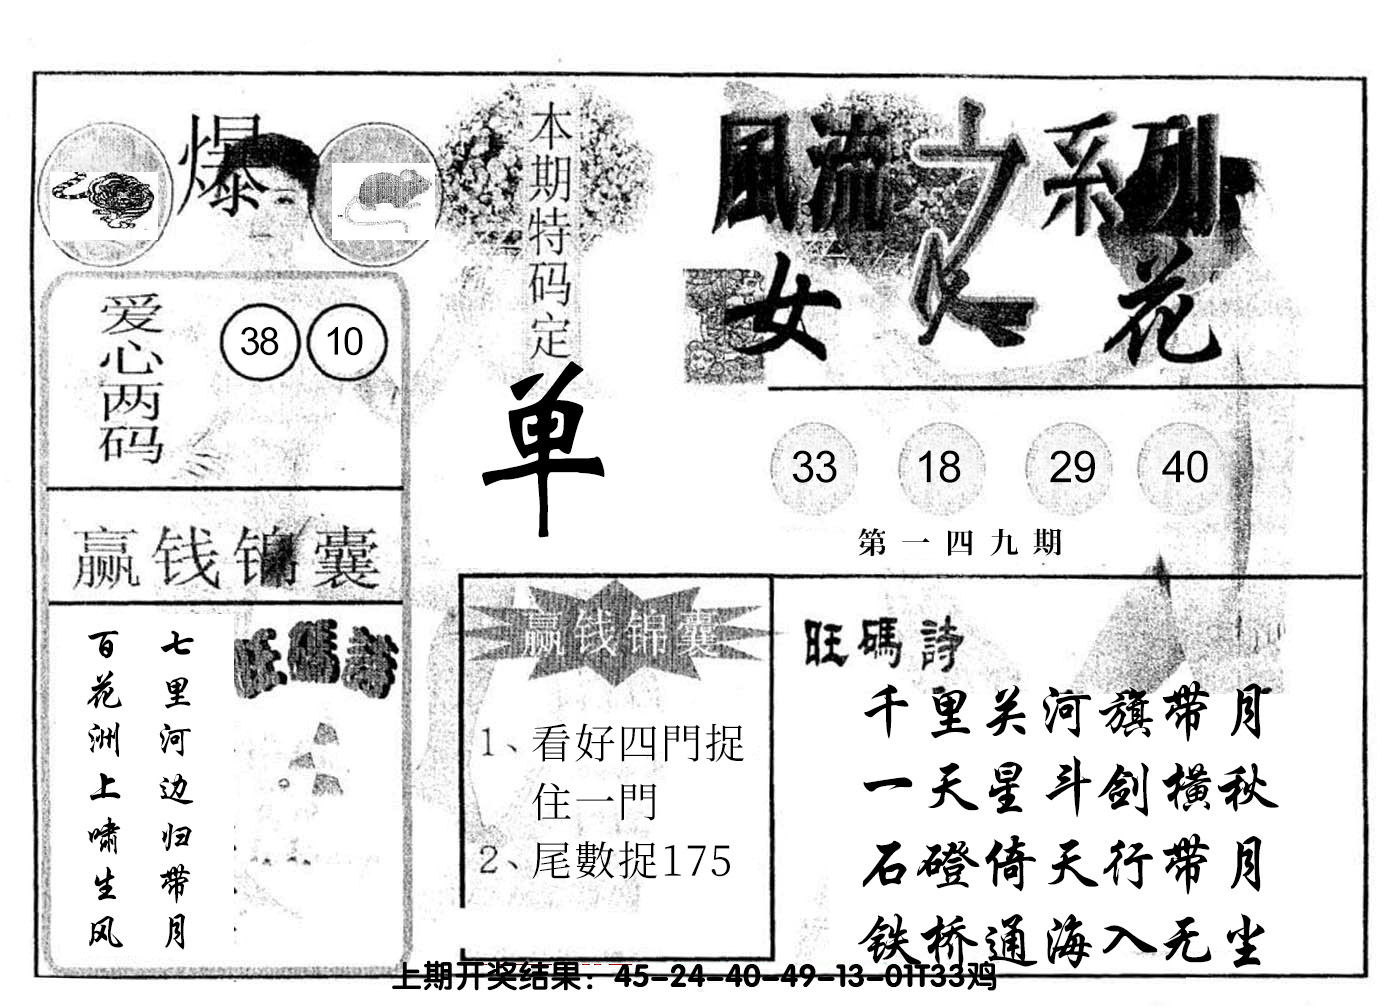 爆
本期特码定
单
風流之系列
女人花
爱心两码
38 10
33 18 29 40
第一四九期
赢钱锦囊
七里河边归带月
百花洲上啸生风
旺碼詩
赢钱锦囊
1、看好四門捉
住一門
2、尾數捉175
旺碼詩
千里关河旗带月
一天星斗剑横秋
石磴倚天行带月
铁桥通海入无尘
上期开奖结果：45-24-40-49-13-01T33鸡